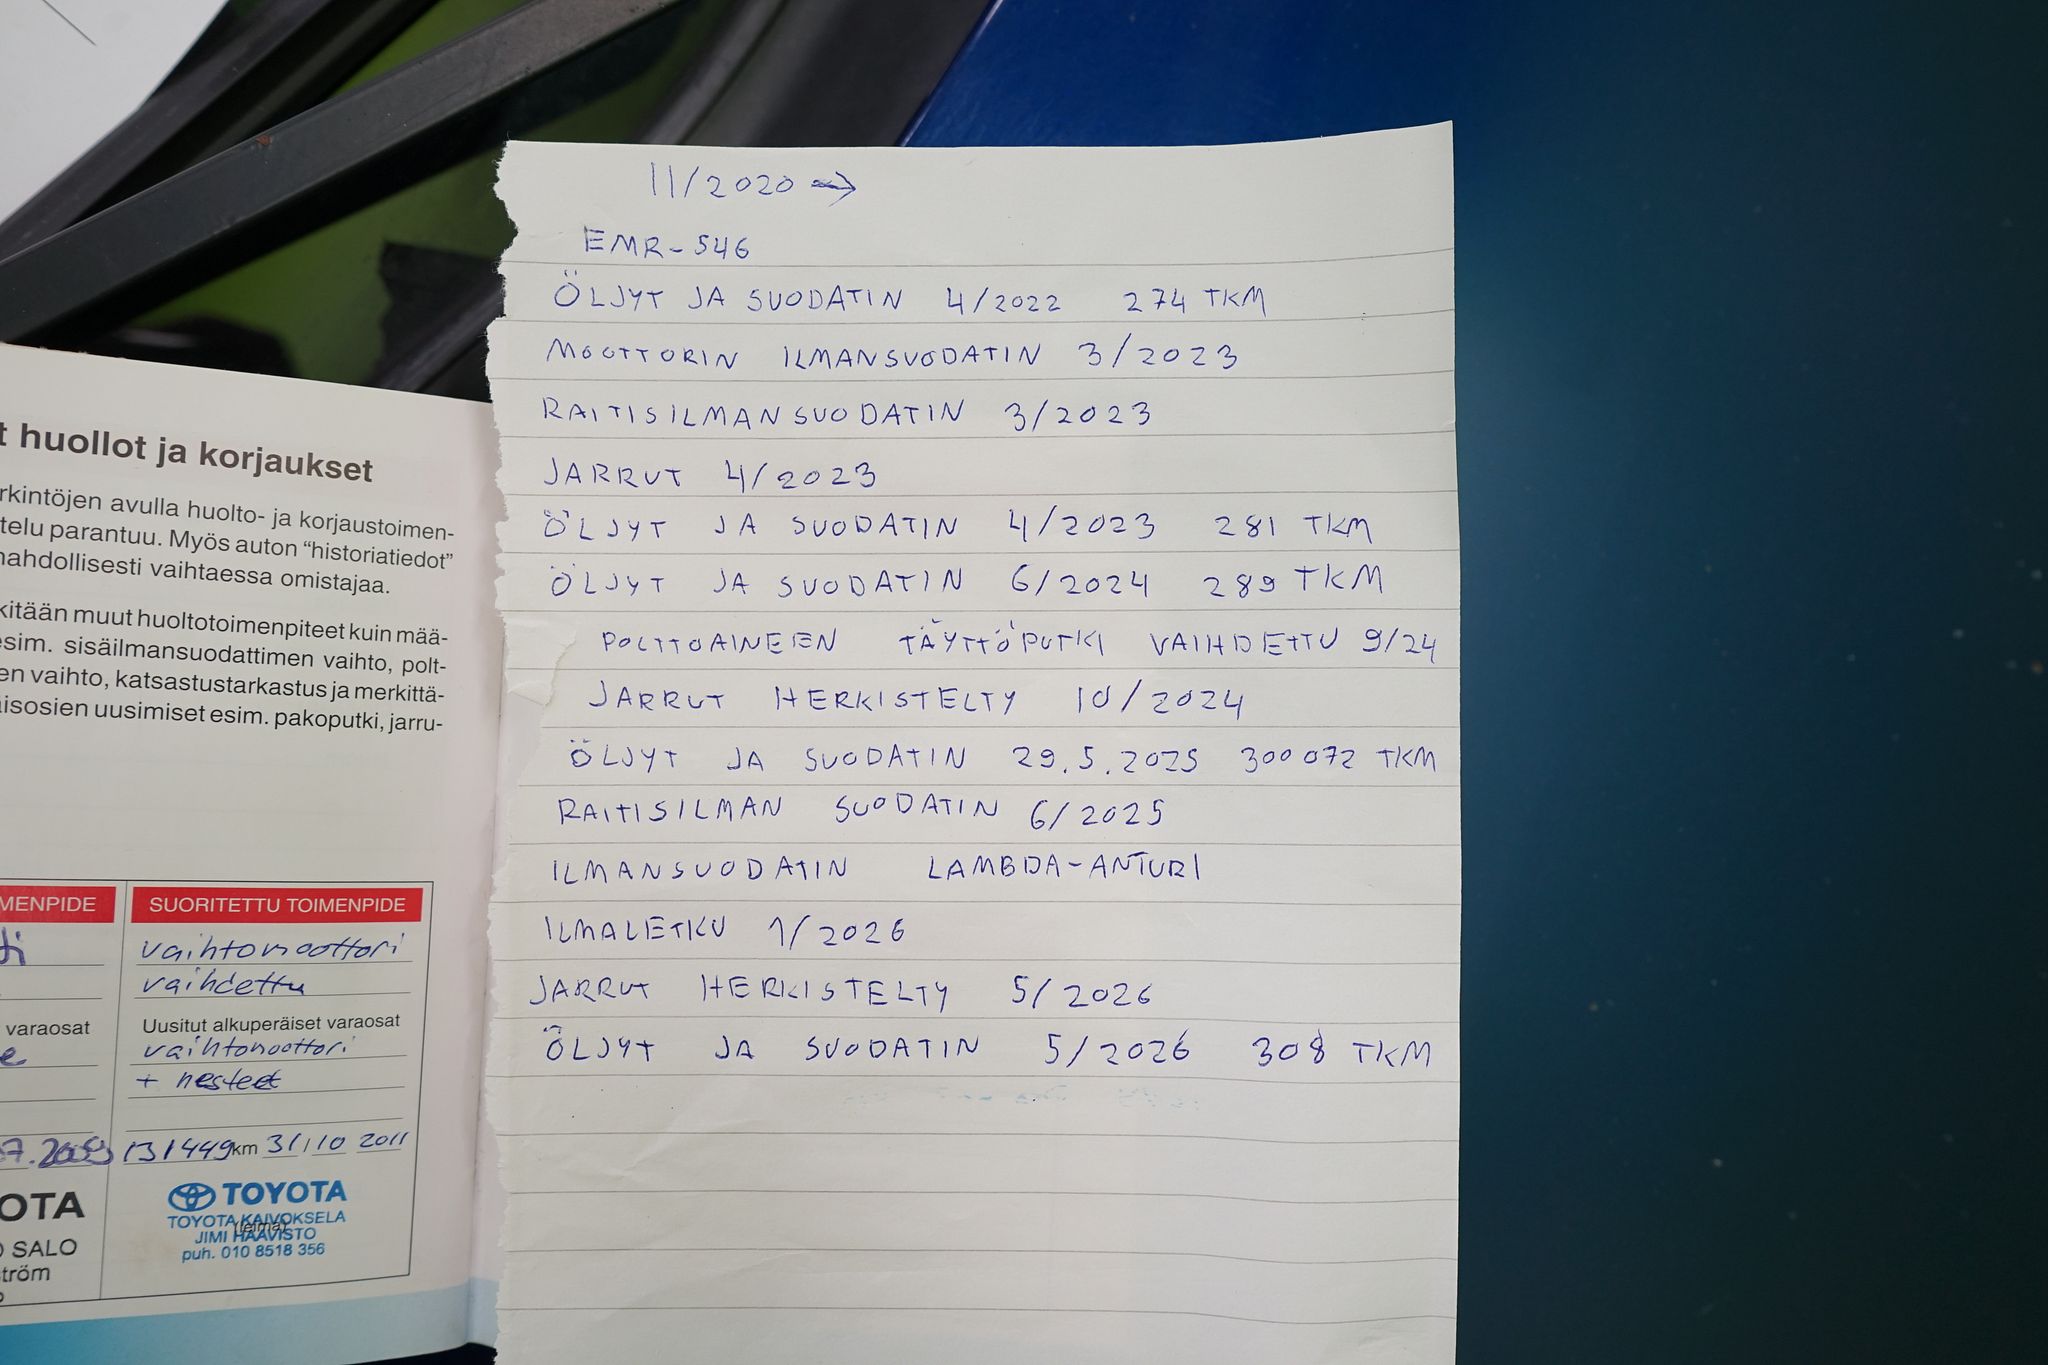 t huollot ja korjaukset
rkintöjen avulla huolto- ja korjaustoimen-
telu parantuu. Myös auton "historiatiedot"
mahdollisesti vaihtaessa omistajaa.
kitään muut huoltotoimenpiteet kuin mää-
esim. sisäilmansuodattimen vaihto, polt-
en vaihto, katsastustarkastus ja merkittä-
aisosien uusimiset esim. pakoputki, jarru-
MENPIDE
varaosat
OTA
SALO
ström
SUORITETTU TOIMENPIDE
vaihtomoottori
vaihdettu
Uusitut alkuperäiset varaosat
vaihtomoottori
+ nesteet
131449 km 31/10 2011
TOYOTA
TOYOTA KAIVOKSELA
(leima)
JIMI HAAVISTO
puh. 010 8518 356
11/2020 →
EMR-546
ÖLJYT JA SUODATIN 4/2022 274 TKM
MOOTTORIN ILMANSUODATIN 3/2023
RAITISILMANSUODATIN 3/2023
JARRUT 4/2023
ÖLJYT JA SUODATIN 4/2023 281 TKM
ÖLJYT JA SUODATIN 6/2024 289 TKM
POLTTOAINEEN TÄYTTÖPUTKI VAIHDETTU 9/24
JARRUT HERKISTELTY 10/2024
ÖLJYT JA SUODATIN 29.5.2025 300072 TKM
RAITISILMAN SUODATIN 6/2025
ILMANSUODATIN LAMBDA-ANTURI
ILMALETKU 1/2026
JARRUT HERKISTELTY 5/2026
ÖLJYT JA SUODATIN 5/2026 308 TKM